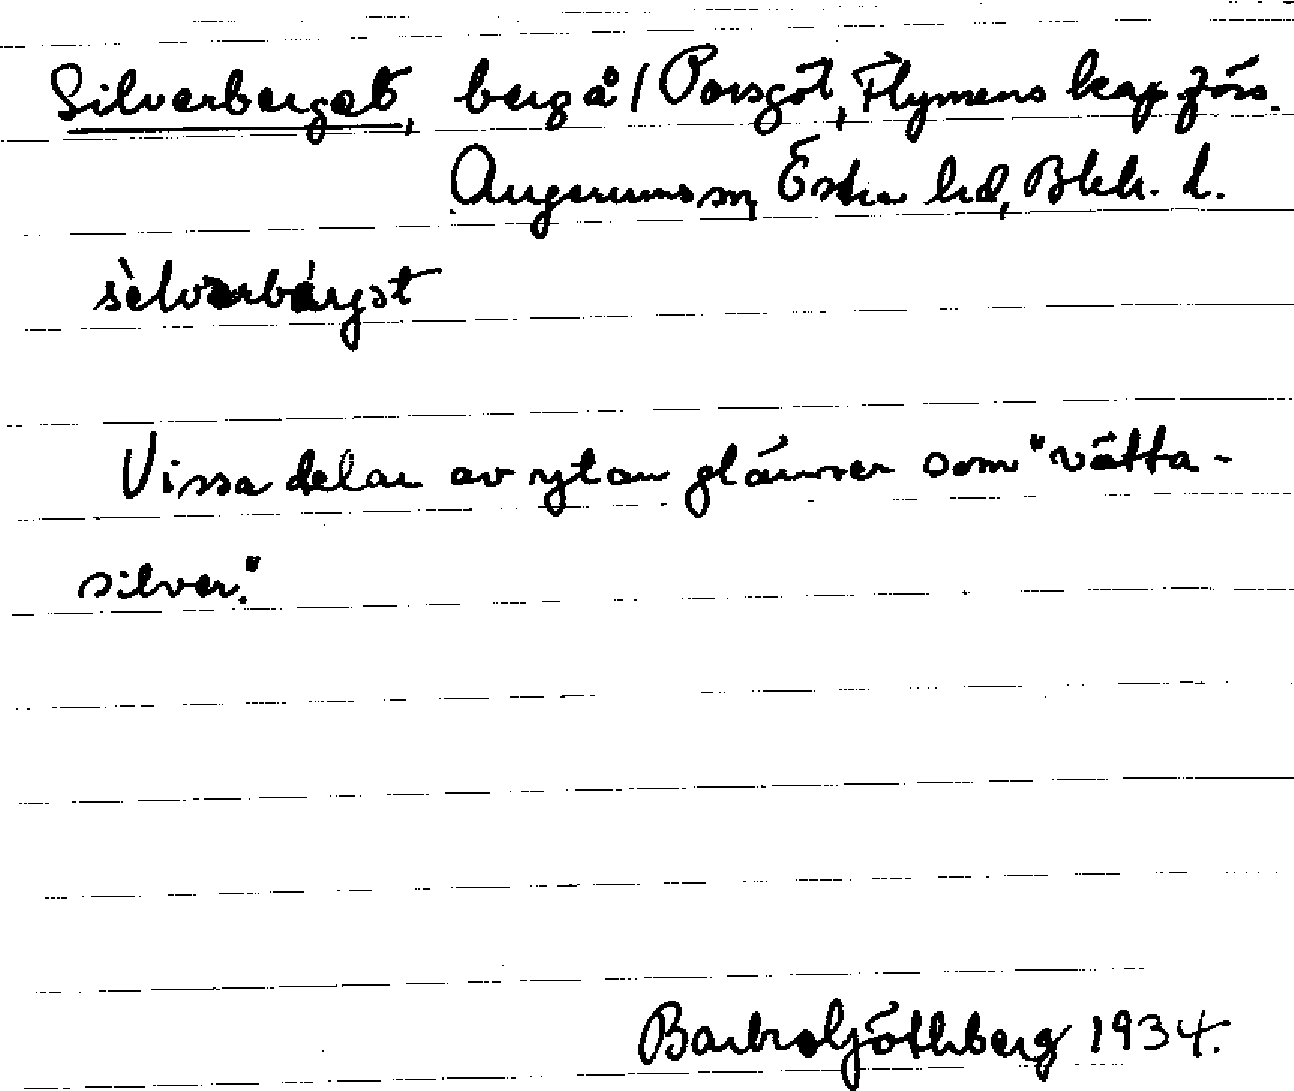 Silverberget, berg å 1 Porsgöl, Flymens kap. förs.
Augerums sn, Östra hd, Blek. l.
sìlvərbárjət
Vissa delar av ytan glänser som "vätta-
silver."
Barbro Ljöthberg 1934.